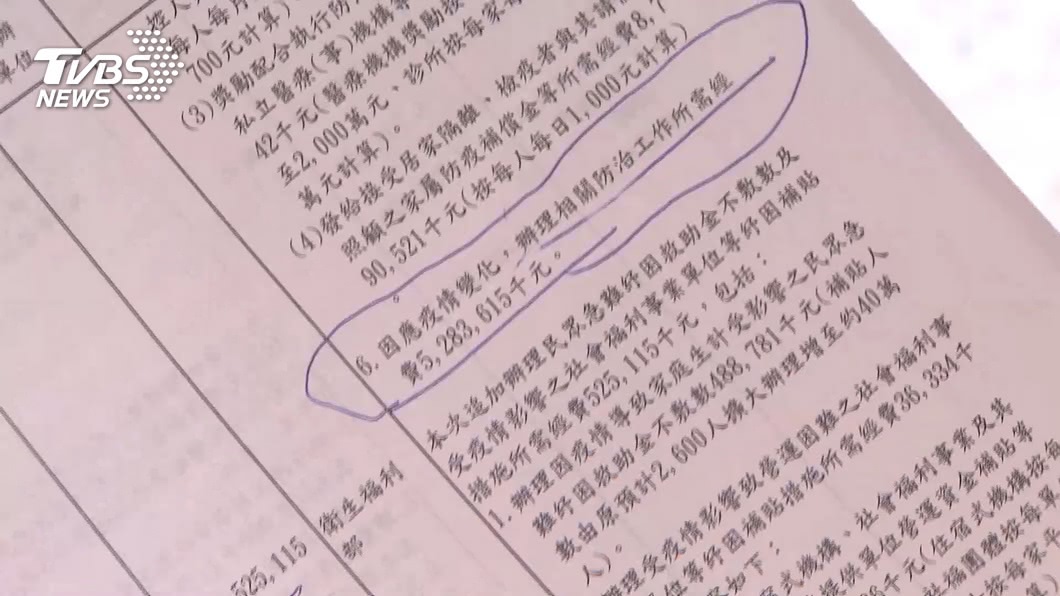 TVBS
NEWS
700元計算)
(3)獎勵配合執行防
私立醫療(事)機構
42千元(醫療機構獎勵按
至2,000萬元、診所按每家
萬元計算)。
(4)發給接受居家隔離、檢疫者與其
照顧之家屬防疫補償金等所需經費8,7
90,521千元(按每人每日1,000元計算)
。
6.因應疫情變化，辦理相關防治工作所需經
費5,283,615千元。
本次追加辦理民眾急難紓困救助金不敷數及
受疫情影響之社會福利事業單位等紓困補貼
措施所需經費525,115千元，包括：
1.辦理因疫情等致家庭生計受影響之民眾急
難紓困救助金不敷數488,781千元(補貼人
數由原預計2,600人擴大辦理增至約40萬
人)。
辦理受疫情影響致營運困難之社會福利事
位等紓困補貼措施所需經費36,334千
如下：
式機構、社會福利事業及其
提供單位營運資金補貼等
千元(住宿式機構按每
社福團體按每
按每家
525,115
衛生福利
部